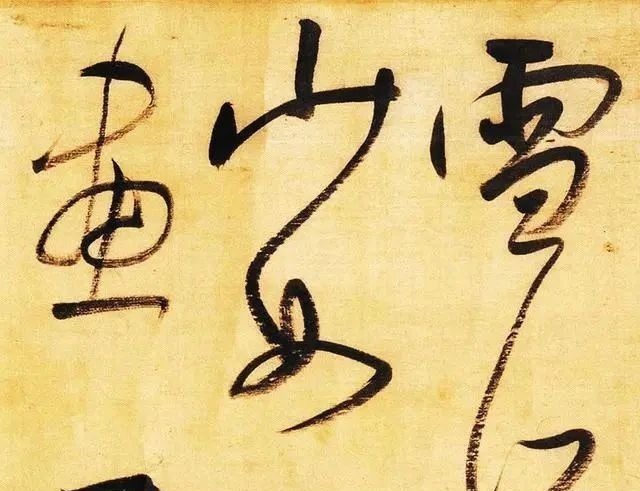 雪
山如
畫